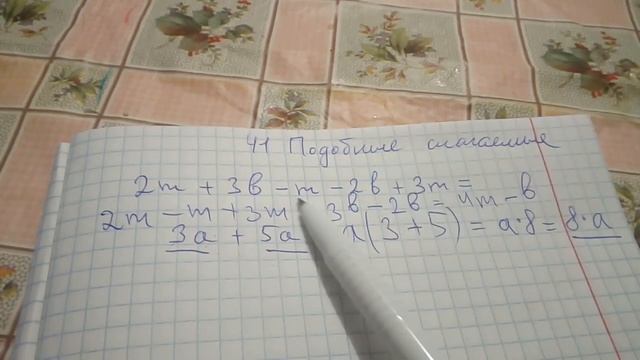 41 Подобные слагаемые
2m + 3в - m - 2в + 3m =
2m - m + 3m 3в - 2в = 4m - в
3a + 5a (3 + 5) = a·8 = 8·a